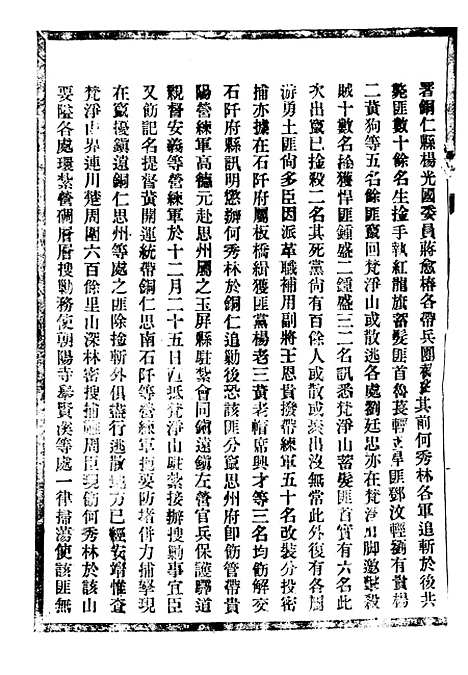 署銅仁縣楊光國委員蔣愈椿各帶兵團截其前何秀林各軍追斬於後共
斃匪數十餘名生擒手執紅龍旗蓄髮匪首魯萇輕立旱匪鄧汶輕劉有貴楊
二黃狗等五名餘匪竄回梵淨山或散逃各處劉廷忠亦在梵淨山脚邀擊殺
賊十數名搶獲悍匪鍾盛二鍾盛三二名訊悉梵淨山蓄髮匪首實有六名此
次出竄已搶殺二名其死黨尚有百餘人或散或聚出沒無常此外復有各屬
游勇土匪尚多臣因派革職補用副將王恩貴撥帶練軍五十名改裝分投密
捕亦據在石阡府屬板橋緝獲匪黨楊老三黃老帽席興才等三名均飭解交
石阡府縣訊明懲辦何秀林於銅仁追勦後恐該匪分竄思州府卽飭管帶貴
陽營練軍高德元赴思州屬之玉屏縣駐紮會同鎮遠鎮左營官兵保護驛道
親督安義等營練軍於十二月二十五日直抵梵淨山駐紮接辦搜勦事宜臣
又飭記名提督黃開運統帶銅仁思南石阡等營練軍扼要防堵併力捕拏現
在竄擾鎮遠銅仁思州等處之匪除擒斬外俱盡行逃散地方已經安靖惟查
梵淨山界連川楚周圍六百餘里山深林密搜捕難周臣現飭何秀林於該山
要隘各處環紮營碉層層搜勦務使朝陽寺慕賢溪等處一律掃蕩使該匪無